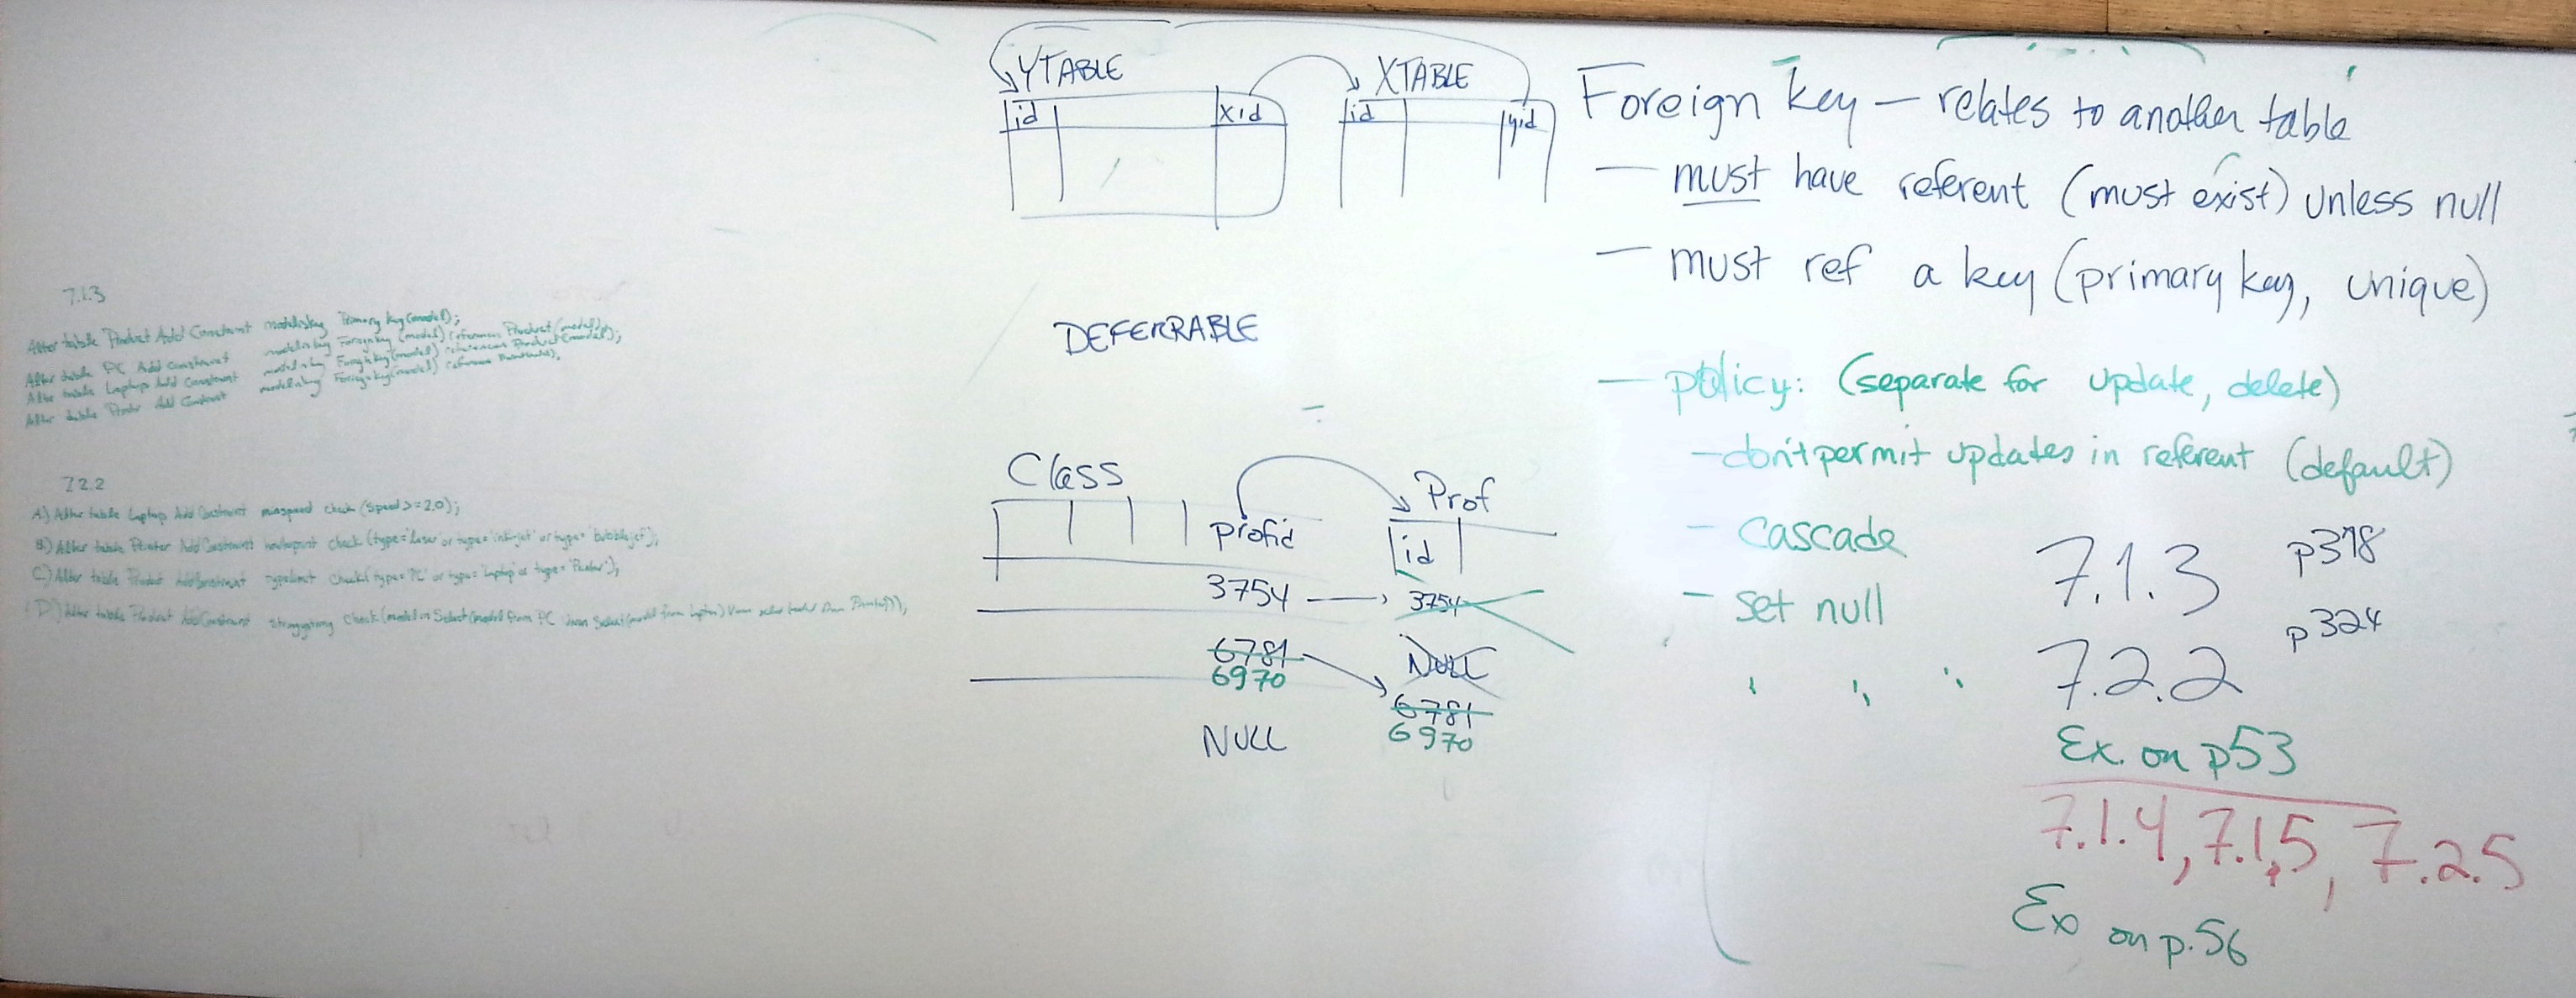 7.1.3
Alter table Product Add Constraint modeliskey Primary Key(model);
Alter table PC Add constraint modeliskey Foreign Key (model) references Product (model);
Alter table Laptop Add Constraint modeliskey Foreign Key(model) references Product(model);
Alter table Printer Add Constraint modeliskey Foreign Key(model) references
7.2.2
A.) Alter table Laptop Add Constraint minspeed check (Speed >= 2.0);
B.) Alter table Printer Add Constraint check (type='laser' or type='ink-jet' or type='bubblejet');
C.) Alter table Product Add Constraint check (type='PC' or type='Laptop' or type='Printer');
D.) Alter table Product Add Constraint check (model in Select (model from PC Union Select (model from Laptop) Union
YTABLE
id xid
XTABLE
id yid
DEFERRABLE
Class
profid
3754
6781
6970
NULL
Prof
id
3754
NULL
6781
6970
Foreign key — relates to another table
— must have referent (must exist) unless null
— must ref a key (primary key, unique)
— policy: (separate for update, delete)
— don't permit updates in referent (default)
— cascade
— set null
7.1.3 p318
7.2.2 p324
Ex. on p53
7.1.4, 7.1.5, 7.2.5
Ex on p.56